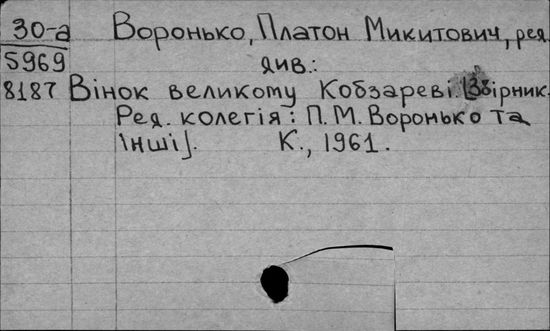 30-а Воронько, Платон Микитович, ред.
5969 див.:
8187 Вінок великому Кобзареві. [Збірник.
Ред. колегія: П.М. Воронько та
інші].  К., 1961.